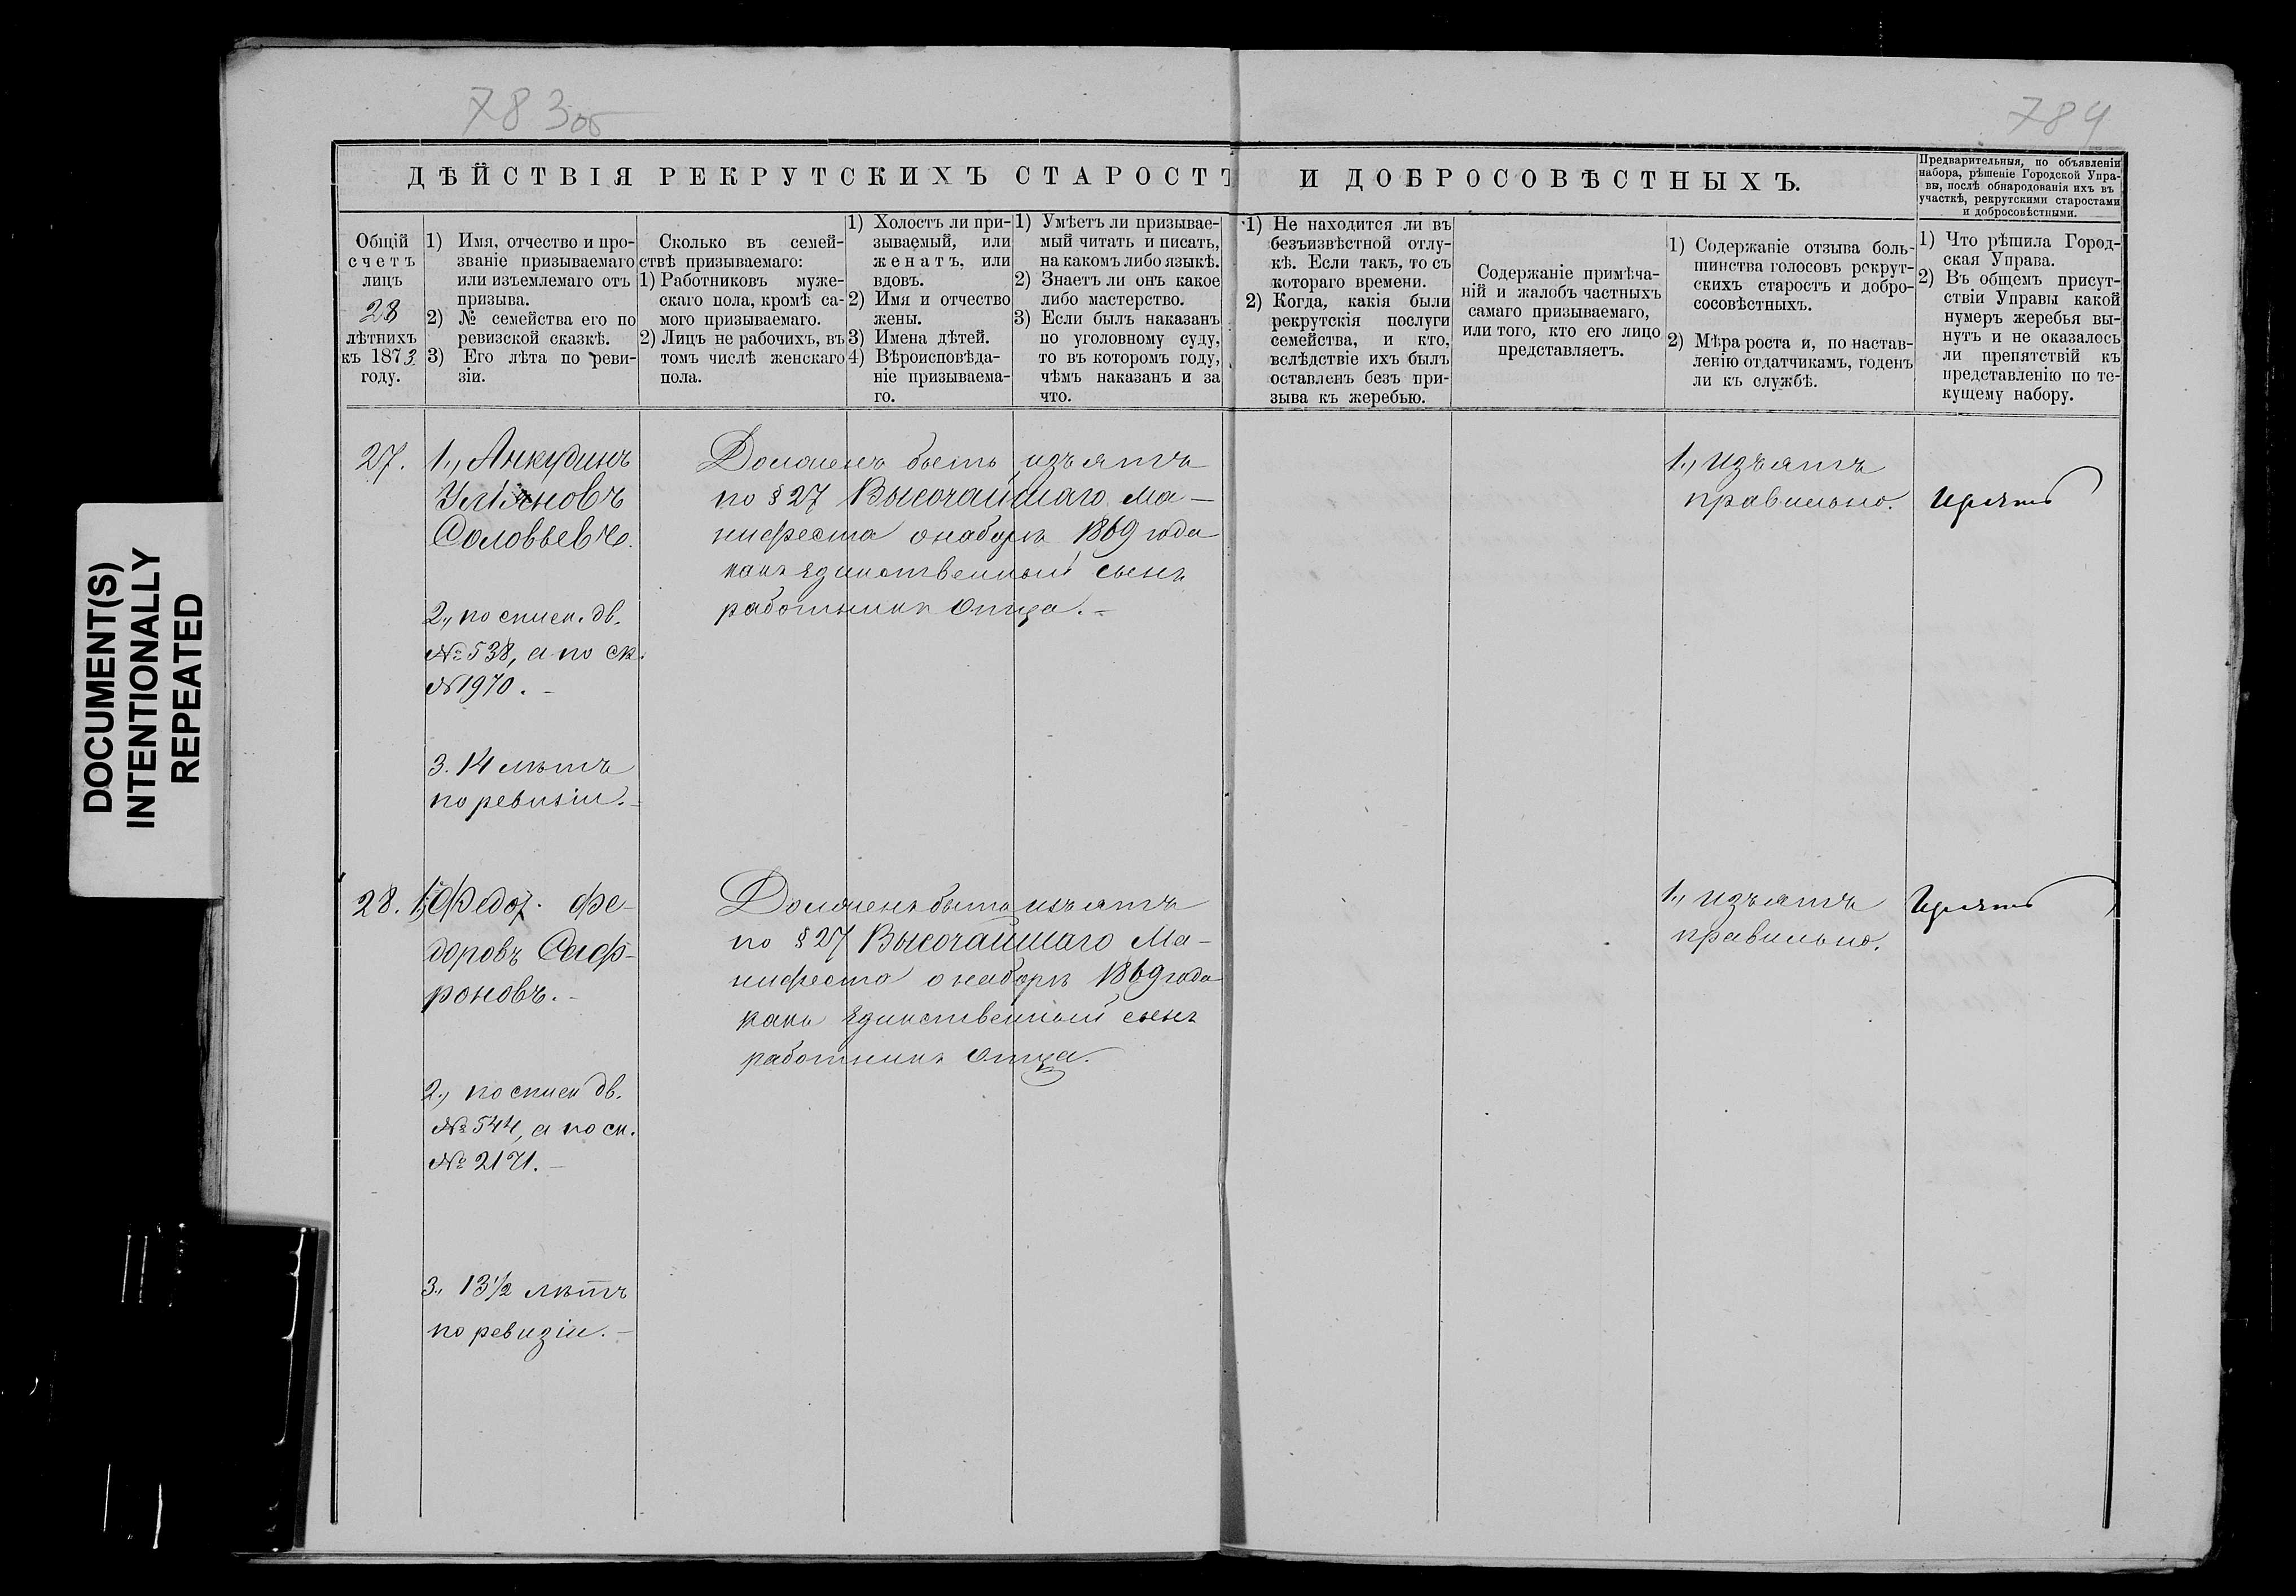 783об
784
ДѢЙСТВІЯ РЕКРУТСКИХЪ СТАРОСТЪ И ДОБРОСОВѢСТНЫХЪ.
Предварительныя, по объявленіи
набора, рѣшеніе Городской Упра-
вы, послѣ обнародованія ихъ въ
участкѣ, рекрутскими старостами
и добросовѣстными.
Общій
счетъ
лицъ
28
лѣтнихъ
къ 1873
году.
1) Имя, отчество и про-
званіе призываемаго
или изъемлемаго отъ
призыва.
2) № семейства его по
ревизской сказкѣ.
3) Его лѣта по реви-
зіи.
Сколько въ семей-
ствѣ призываемаго:
1) Работниковъ муже-
скаго пола, кромѣ са-
мого призываемаго.
2) Лицъ не рабочихъ, въ
томъ числѣ женскаго
пола.
1) Холостъ ли при-
зываемый, или
женатъ, или
вдовъ.
2) Имя и отчество
жены.
3) Имена дѣтей.
4) Вѣроисповѣда-
ніе призываема-
го.
1) Умѣетъ ли призывае-
мый читать и писать,
на какомъ либо языкѣ.
2) Знаетъ ли онъ какое
либо мастерство.
3) Если былъ наказанъ
по уголовному суду,
то въ которомъ году,
чѣмъ наказанъ и за
что.
1) Не находится ли въ
безъизвѣстной отлу-
кѣ. Если такъ, то съ
котораго времени.
2) Когда, какія были
рекрутскія послуги
семейства, и кто,
вслѣдствіе ихъ былъ
оставленъ безъ при-
зыва къ жеребью.
Содержаніе примѣча-
ній и жалобъ частныхъ
самаго призываемаго,
или того, кто его лицо
представляетъ.
1) Содержаніе отзыва боль-
шинства голосовъ рекрут-
скихъ старостъ и добро-
сосовѣстныхъ.
2) Мѣра роста и, по настав-
ленію отдатчикамъ, годенъ
ли къ службѣ.
1) Что рѣшила Город-
ская Управа.
2) Въ общемъ присут-
ствіи Управы какой
нумеръ жеребья вы-
нутъ и не оказалось
ли препятствій къ
представленію по те-
кущему набору.
27.
1., Анкудинъ
Ульяновъ
Соловьевъ.
2., по списк. дв.
№ 538, а по ск.
№ 1970. -
3. 14 лѣтъ
по ревизіи. -
Долженъ быть изъятъ
по § 27 Высочайшаго Ма-
нифеста о наборѣ 1869 года
какъ единственный сынъ
работникъ отца. -
1., Изъятъ
правильно.
Изъять
28.
1., Федор. Фе-
доровъ Саф-
роновъ. -
2., по списк дв.
№ 544, а по ск.
№ 2171. -
3., 13 1/2 лѣтъ
по ревизіи. -
Долженъ быть изъятъ
по § 27 Высочайшаго Ма-
нифеста о наборѣ 1869 года
какъ единственный сынъ
работникъ отца.
1., Изъятъ
правильно.
Изъять
DOCUMENT(S)
INTENTIONALLY
REPEATED